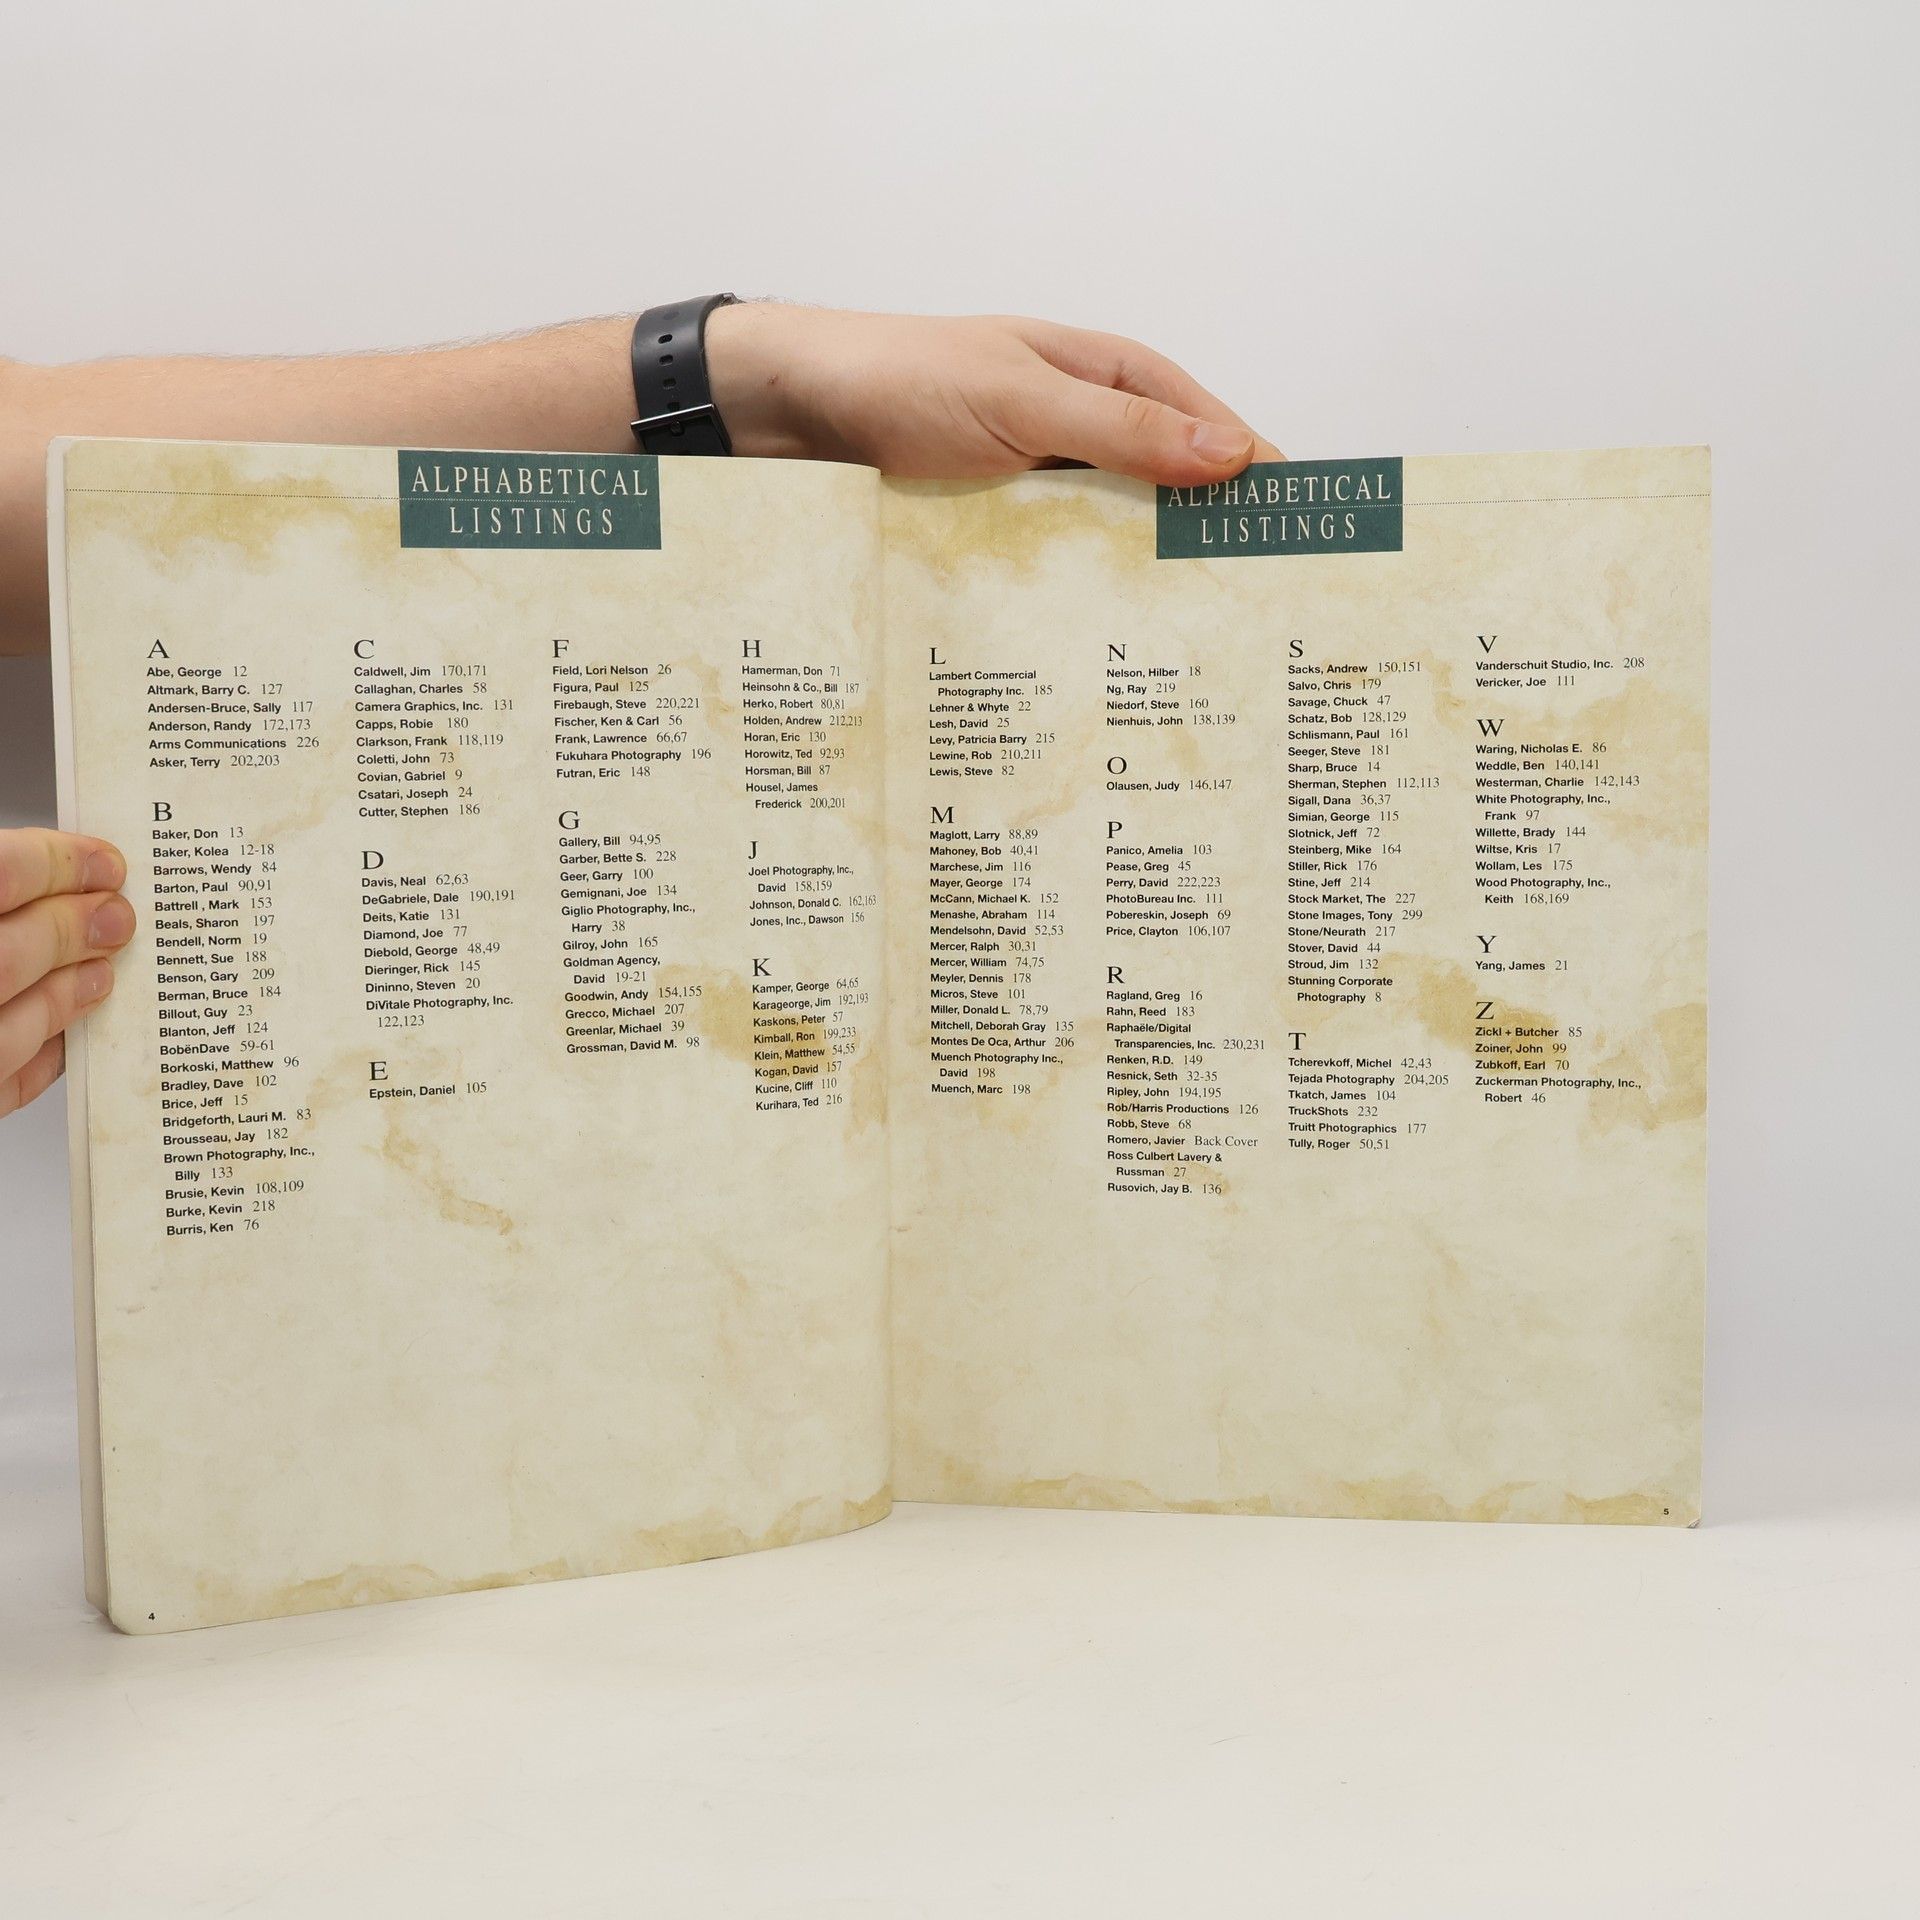 ALPHABETICAL
LISTINGS
A
Abe, George 12
Altmark, Barry C. 127
Andersen-Bruce, Sally 117
Anderson, Randy 172,173
Arms Communications 226
Asker, Terry 202,203
B
Baker, Don 13
Baker, Kolea 12-18
Barrows, Wendy 84
Barton, Paul 90,91
Battrell , Mark 153
Beals, Sharon 197
Bendell, Norm 19
Bennett, Sue 188
Benson, Gary 209
Berman, Bruce 184
Billout, Guy 23
Blanton, Jeff 124
BobënDave 59-61
Borkoski, Matthew 96
Bradley, Dave 102
Brice, Jeff 15
Bridgeforth, Lauri M. 83
Brousseau, Jay 182
Brown Photography, Inc.,
Billy 133
Brusie, Kevin 108,109
Burke, Kevin 218
Burris, Ken 76
C
Caldwell, Jim 170,171
Callaghan, Charles 58
Camera Graphics, Inc. 131
Capps, Robie 180
Clarkson, Frank 118,119
Coletti, John 73
Covian, Gabriel 9
Csatari, Joseph 24
Cutter, Stephen 186
D
Davis, Neal 62,63
DeGabriele, Dale 190,191
Deits, Katie 131
Diamond, Joe 77
Diebold, George 48,49
Dieringer, Rick 145
Dininno, Steven 20
DiVitale Photography, Inc.
122,123
E
Epstein, Daniel 105
F
Field, Lori Nelson 26
Figura, Paul 125
Firebaugh, Steve 220,221
Fischer, Ken & Carl 56
Frank, Lawrence 66,67
Fukuhara Photography 196
Futran, Eric 148
G
Gallery, Bill 94,95
Garber, Bette S. 228
Geer, Garry 100
Gemignani, Joe 134
Giglio Photography, Inc.,
Harry 38
Gilroy, John 165
Goldman Agency,
David 19-21
Goodwin, Andy 154,155
Grecco, Michael 207
Greenlar, Michael 39
Grossman, David M. 98
H
Hamerman, Don 71
Heinsohn & Co., Bill 187
Herko, Robert 80,81
Holden, Andrew 212,213
Horan, Eric 130
Horowitz, Ted 92,93
Horsman, Bill 87
Housel, James
Frederick 200,201
J
Joel Photography, Inc.,
David 158,159
Johnson, Donald C. 162,163
Jones, Inc., Dawson 156
K
Kamper, George 64,65
Karageorge, Jim 192,193
Kaskons, Peter 57
Kimball, Ron 199,233
Klein, Matthew 54,55
Kogan, David 157
Kucine, Cliff 110
Kurihara, Ted 216
4
ALPHABETICAL
LISTINGS
L
Lambert Commercial
Photography Inc. 185
Lehner & Whyte 22
Lesh, David 25
Levy, Patricia Barry 215
Lewine, Rob 210,211
Lewis, Steve 82
M
Maglott, Larry 88,89
Mahoney, Bob 40,41
Marchese, Jim 116
Mayer, George 174
McCann, Michael K. 152
Menashe, Abraham 114
Mendelsohn, David 52,53
Mercer, Ralph 30,31
Mercer, William 74,75
Meyler, Dennis 178
Micros, Steve 101
Miller, Donald L. 78,79
Mitchell, Deborah Gray 135
Montes De Oca, Arthur 206
Muench Photography Inc.,
David 198
Muench, Marc 198
N
Nelson, Hilber 18
Ng, Ray 219
Niedorf, Steve 160
Nienhuis, John 138,139
O
Olausen, Judy 146,147
P
Panico, Amelia 103
Pease, Greg 45
Perry, David 222,223
PhotoBureau Inc. 111
Pobereskin, Joseph 69
Price, Clayton 106,107
R
Ragland, Greg 16
Rahn, Reed 183
Raphaële/Digital
Transparencies, Inc. 230,231
Renken, R.D. 149
Resnick, Seth 32-35
Ripley, John 194,195
Rob/Harris Productions 126
Robb, Steve 68
Romero, Javier Back Cover
Ross Culbert Lavery &
Russman 27
Rusovich, Jay B. 136
S
Sacks, Andrew 150,151
Salvo, Chris 179
Savage, Chuck 47
Schatz, Bob 128,129
Schlismann, Paul 161
Seeger, Steve 181
Sharp, Bruce 14
Sherman, Stephen 112,113
Sigall, Dana 36,37
Simian, George 115
Slotnick, Jeff 72
Steinberg, Mike 164
Stiller, Rick 176
Stine, Jeff 214
Stock Market, The 227
Stone Images, Tony 299
Stone/Neurath 217
Stover, David 44
Stroud, Jim 132
Stunning Corporate
Photography 8
T
Tcherevkoff, Michel 42,43
Tejada Photography 204,205
Tkatch, James 104
TruckShots 232
Truitt Photographics 177
Tully, Roger 50,51
V
Vanderschuit Studio, Inc. 208
Vericker, Joe 111
W
Waring, Nicholas E. 86
Weddle, Ben 140,141
Westerman, Charlie 142,143
White Photography, Inc.,
Frank 97
Willette, Brady 144
Wiltse, Kris 17
Wollam, Les 175
Wood Photography, Inc.,
Keith 168,169
Y
Yang, James 21
Z
Zickl + Butcher 85
Zoiner, John 99
Zubkoff, Earl 70
Zuckerman Photography, Inc.,
Robert 46
5